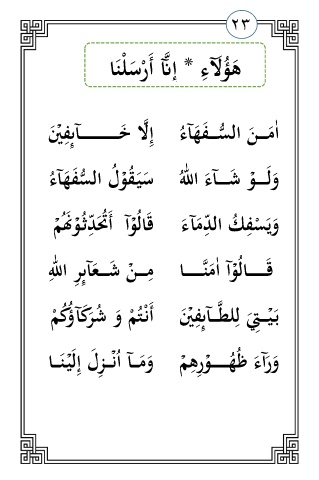 ٢٣
هَؤُلَآءِ * إِنَّآ أَرْسَلْنَا
اٰمَـنَ السُّــفَـهَآءُ إِلَّا خَــــآىِٕفِيْنَ
وَلَــوْ شَــآءَ اللّٰهُ سَيَقُوْلُ السُّفَهَآءُ
وَيَسْفِكُ الدِّمَآءَ قَالُوْٓا أَتُحَدِّثُوْنَهُمْ
قَــالُوْٓا اٰمَنَّــا مِـنْ شَـعَآىِٕرِ اللّٰهِ
بَيْـتِيَ لِلطَّـآىِٕفِيْنَ أَنْتُمْ وَ شُرَكَآؤُكُمْ
وَرَآءَ ظُهُــوْرِهِمْ وَمَـآ اُنْـزِلَ إِلَيْنَـا